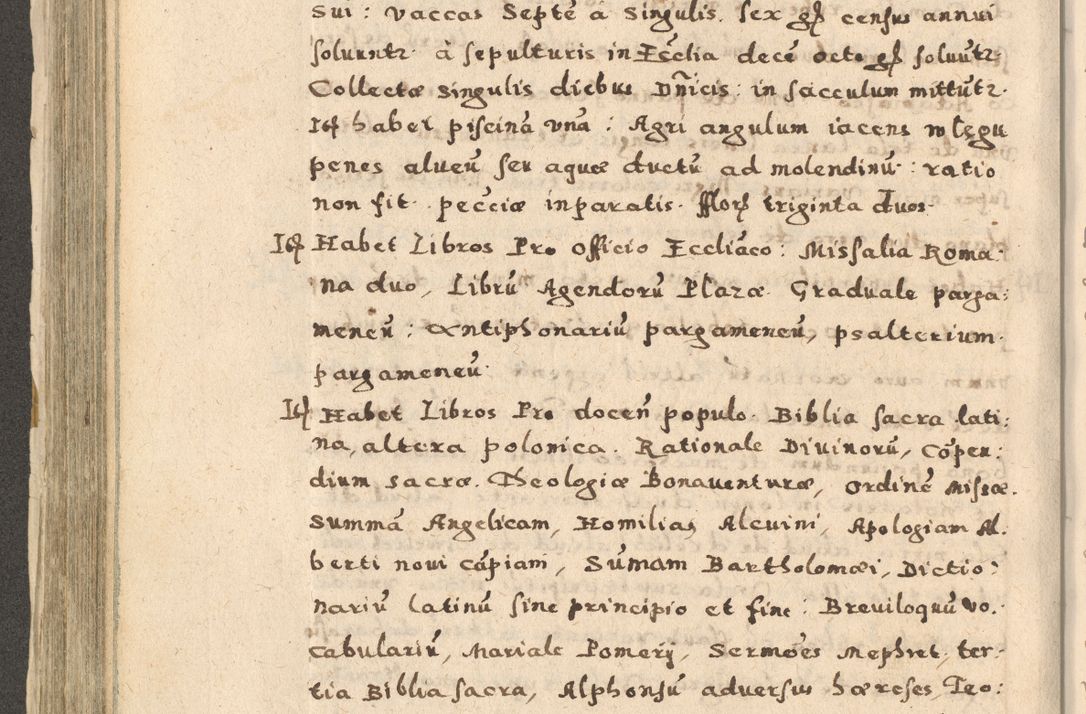 sui: vaccas Septē a singulis. sex gſ census annui
soluuntr. à sepulturis in Ec̄clia decē octo gſ soluūtr.
Collectæ singulis diebus Dn̄icis: in sacculum mittūtr.
Itꝫ habet piscinā vnā: Agri angulum iacens w lęgu
penes alveū seu aquæ ductū ad molendinū: ratio
non fit. pecciæ inparatis. fflorꝫ triginta duos.
Itꝫ Habet Libros Pro officio Eccliāco: Missalia Roma:
na duo, Librū Agendorū Plazæ. Graduale parga:
meneū: Antiphonariū pargameneū, psalterium
pargameneū.
Itꝫ Habet Libros Pro docen̄ populo. Biblia sacra lati:
na, altera polonica. Rationale Diuinorū, Cōpen:
dium sacræ. Theologiæ Bonauenturæ, ordinē missæ.
Summā Angelicam, Homilias Alcuini, Apologiam Al.
berti noui cāpiani, Sūmam Bartholomæi, Dictio:
nariū latinū sine principio et fine: Breuiloquū vo.
cabulariū, Mariale Pomerij, Sermōes Mephret, ter:
tia Biblia sacra, Alphonsū adversus hæreses, Teo: